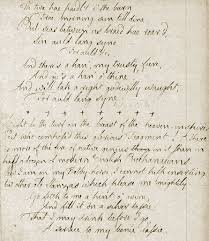 We twa hae paidl't i' the burn
Frae morning sun till dine
But seas between us braid hae roar'd
Sin auld lang syne
For auld &c.
And there's a han' my trusty fiere,
And gie's a han' o' thine
And we'll tak a right gudewilly waught,
For auld lang syne
Light be the turf on the breast of the heaven-inspired
Poet who composed this glorious Fragment! There
is more of the fire of native genius in it than in
half a dozen of modern English Bacchanalians
I am on my hobby
two other old Stanzas which please me mightily
Go fetch to me a pint o' wine,
And fill it in a silver tassie
That I may drink before I go,
A service to my bonie lassie